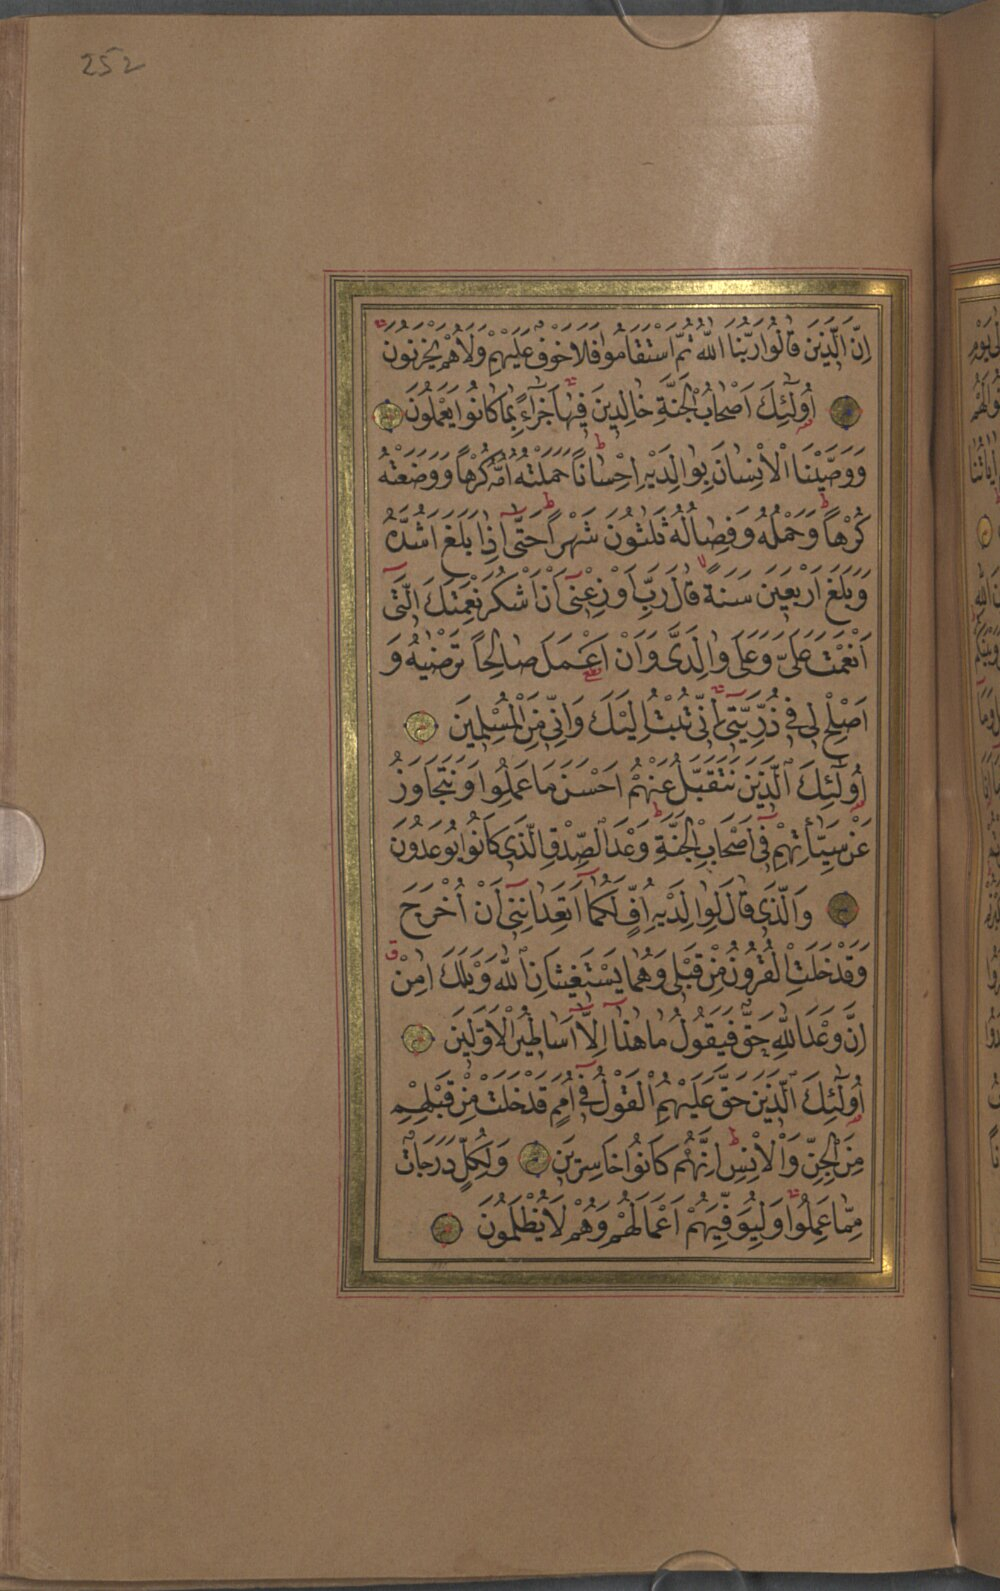 252
اِنَّ الَّذٖينَ قَالُوا رَبُّنَا اللّٰهُ ثُمَّ اسْتَقَامُوا فَلَا خَوْفٌ عَلَيْهِمْ وَلَا هُمْ يَحْزَنُونَ
اُولٰٓئِكَ اَصْحَابُ الْجَنَّةِ خَالِدٖينَ فٖيهَا جَزَٓاءً بِمَا كَانُوا يَعْمَلُونَ
وَوَصَّيْنَا الْاِنْسَانَ بِوَالِدَيْهِ اِحْسَانًا حَمَلَتْهُ اُمُّهُ كُرْهًا وَوَضَعَتْهُ
كُرْهًا وَحَمْلُهُ وَفِصَالُهُ ثَلٰثُونَ شَهْرًا حَتّٰٓى اِذَا بَلَغَ اَشُدَّهُ
وَبَلَغَ اَرْبَعٖينَ سَنَةً قَالَ رَبِّ اَوْزِعْنٖٓى اَنْ اَشْكُرَ نِعْمَتَكَ الَّتٖٓى
اَنْعَمْتَ عَلَىَّ وَعَلٰى وَالِدَىَّ وَاَنْ اَعْمَلَ صَالِحًا تَرْضٰيهُ وَ
اَصْلِحْ لٖى فٖى ذُرِّيَّتٖٓى اِنّٖى تُبْتُ اِلَيْكَ وَاِنّٖى مِنَ الْمُسْلِمٖينَ
اُولٰٓئِكَ الَّذٖينَ نَتَقَبَّلُ عَنْهُمْ اَحْسَنَ مَا عَمِلُوا وَنَتَجَاوَزُ
عَنْ سَيِّاٰتِهِمْ فٖٓى اَصْحَابِ الْجَنَّةِ وَعْدَ الصِّدْقِ الَّذٖى كَانُوا يُوعَدُونَ
وَالَّذٖى قَالَ لِوَالِدَيْهِ اُفٍّ لَكُمَٓا اَتَعِدَانِنٖٓى اَنْ اُخْرَجَ
وَقَدْ خَلَتِ الْقُرُونُ مِنْ قَبْلٖى وَهُمَا يَسْتَغٖيثَانِ اللّٰهَ وَيْلَكَ اٰمِنْ
اِنَّ وَعْدَ اللّٰهِ حَقٌّ فَيَقُولُ مَا هٰذَٓا اِلَّٓا اَسَاطٖيرُ الْاَوَّلٖينَ
اُولٰٓئِكَ الَّذٖينَ حَقَّ عَلَيْهِمُ الْقَوْلُ فٖٓى اُمَمٍ قَدْ خَلَتْ مِنْ قَبْلِهِمْ
مِنَ الْجِنِّ وَالْاِنْسِ اِنَّهُمْ كَانُوا خَاسِرٖينَ وَلِكُلٍّ دَرَجَاتٌ
مِمَّا عَمِلُوا وَلِيُوَفِّيَهُمْ اَعْمَالَهُمْ وَهُمْ لَا يُظْلَمُونَ